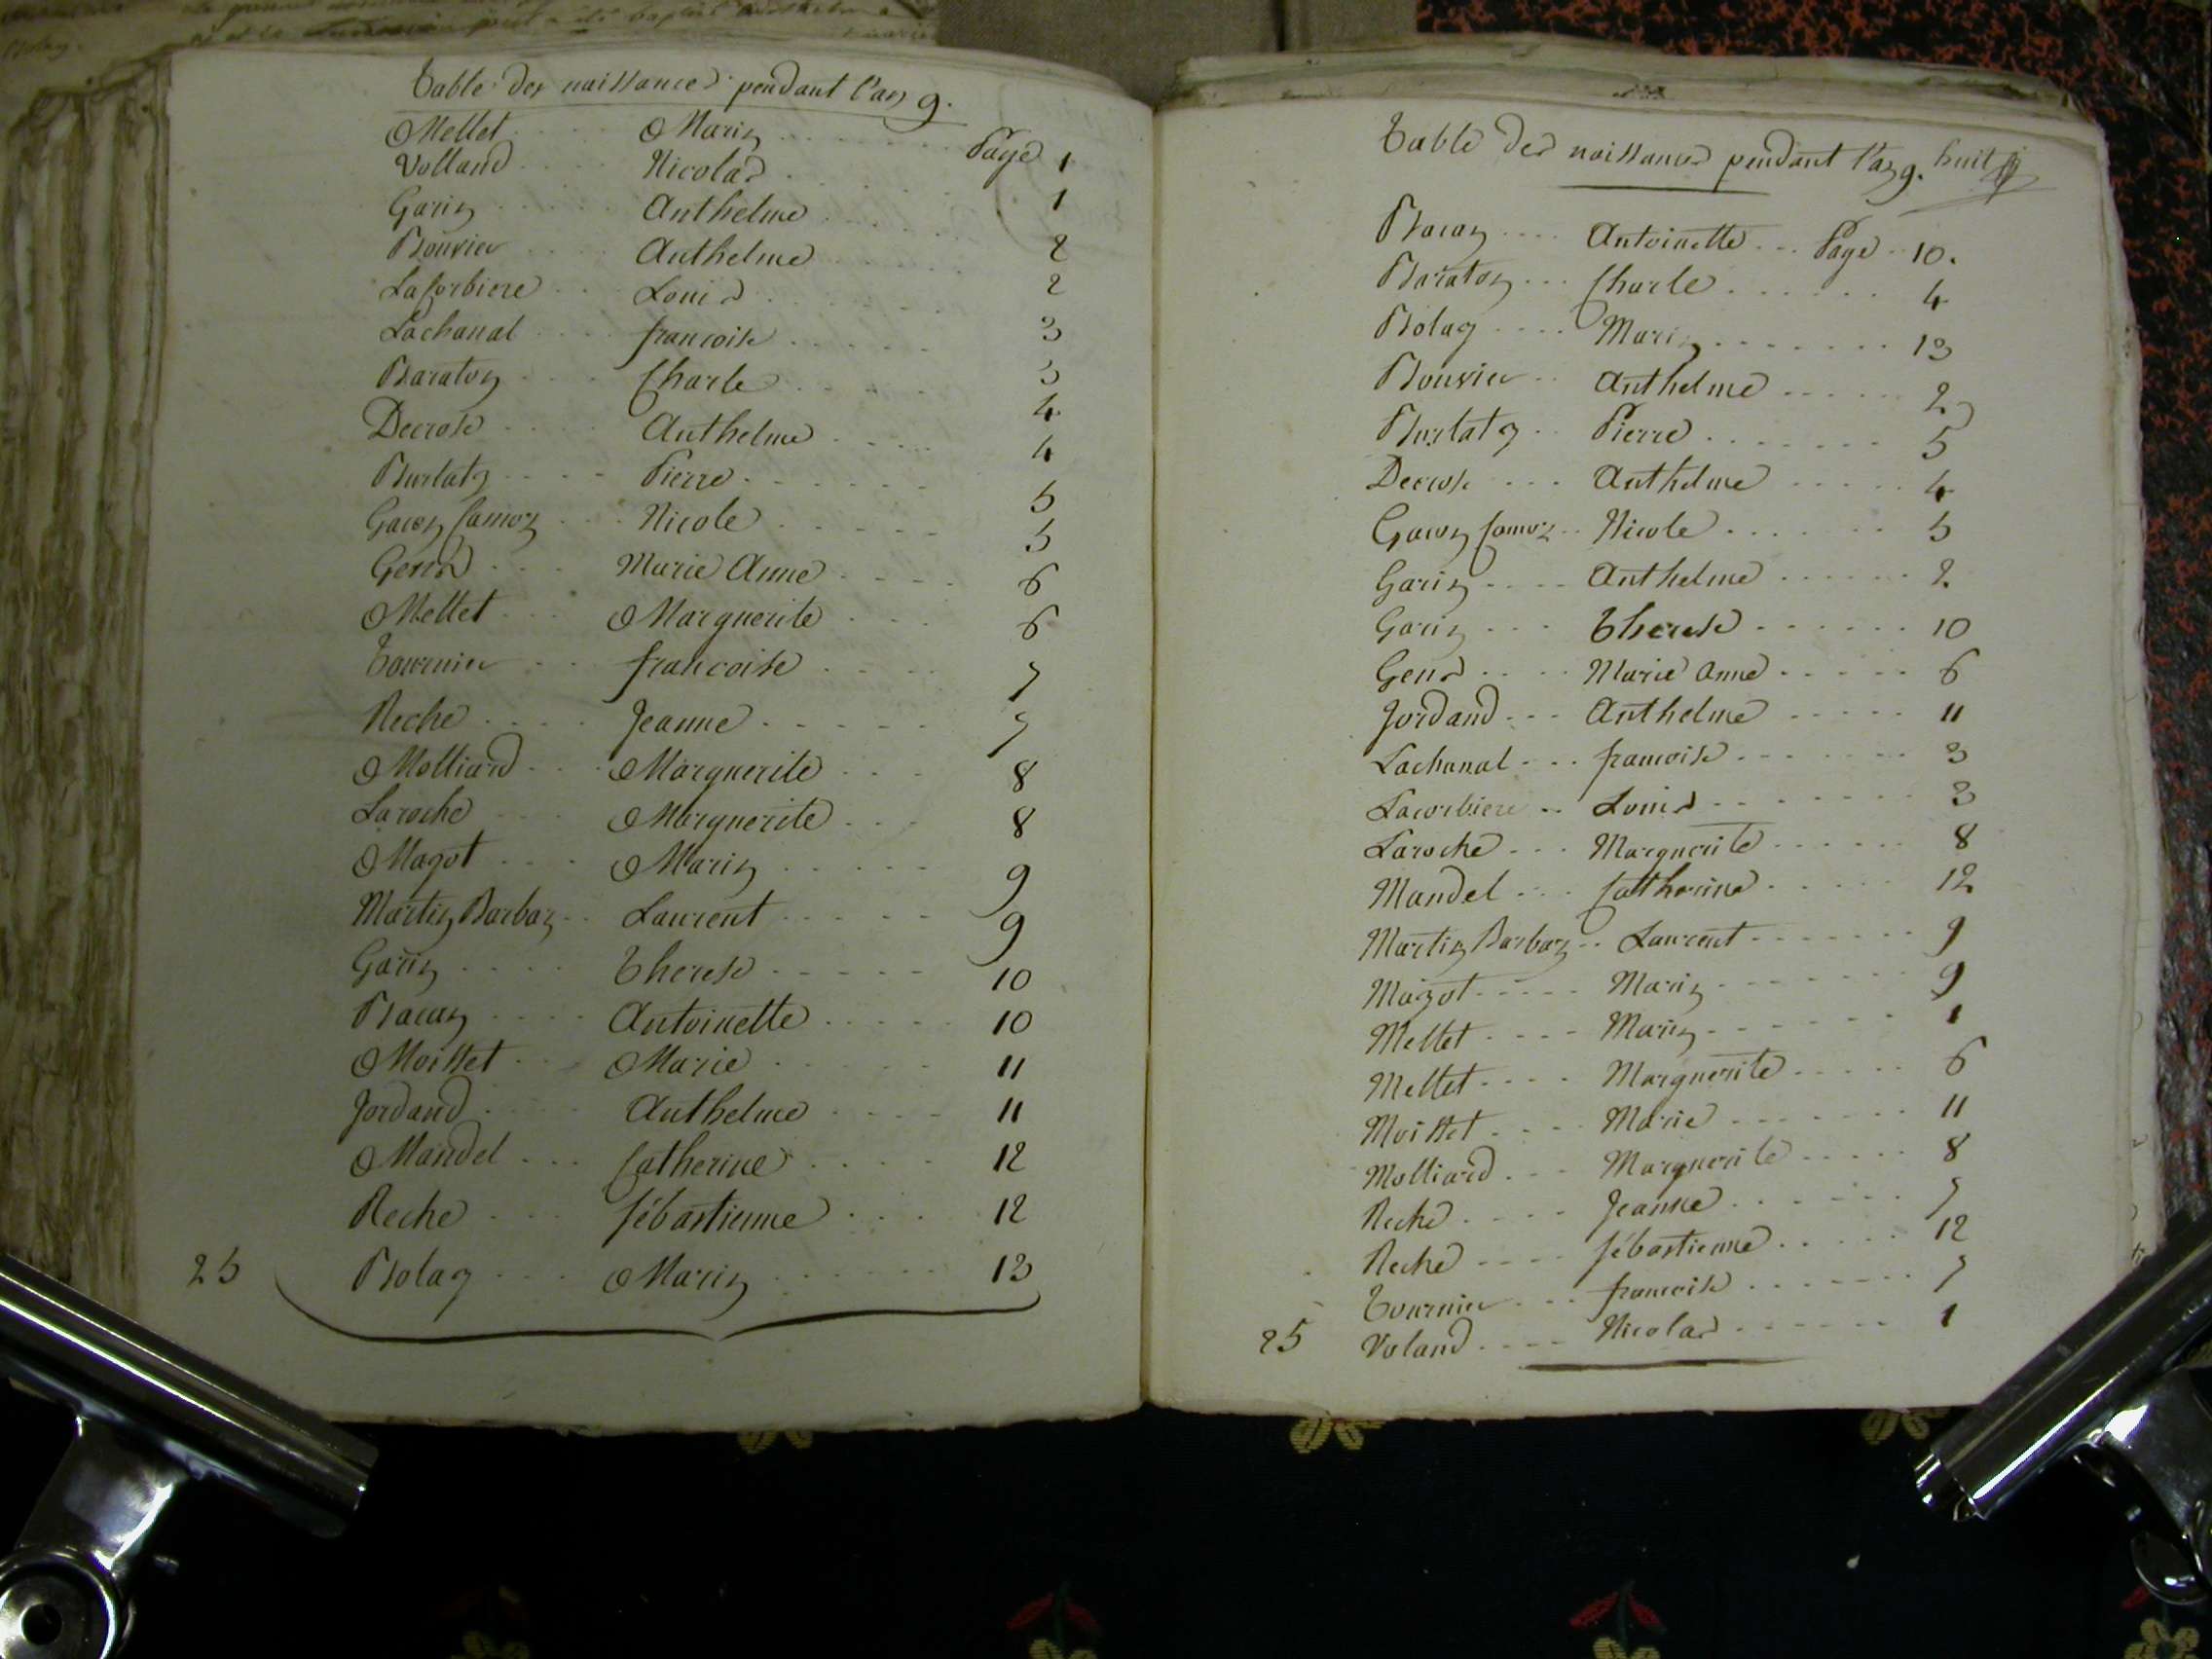 Table des naissances pendant l'an 9.
Mellet Marin Page 1
Volland Nicolas 1
Garin Anthelme 2
Bouvier Anthelme 2
Lacorbiere Louis 3
Lachanal francoise 3
Baraton Charle 4
Decrose Anthelme 4
Burlat Pierre 5
Gacon Camoz Nicole 5
Gend Marie Anne 6
Mellet Marguerite 6
Tournier francoise 7
Reche Jeanne 7
Molliard Marguerite 8
Laroche Marguerite 8
Magot Marin 9
Martin Barbaz Laurent 9
Garin Therese 10
Antoinette 10
Moisset Marie 11
Jordand Anthelme 11
Mandel Catherine 12
Reche Sébastienne 12
25 Bolag Marin 13
Table des naissances pendant l'an 9. huit
Antoinette Page 10.
Baraton Charle 4
Bolag Marin 13
Bouvier Anthelme 2
Pierre 5
Decrose Anthelme 4
Gacon Camoz Nicole 5
Garin Anthelme 2
Garin Therese 10
Gend Marie Anne 6
Jordand Anthelme 11
Lachanal francoise 3
Lacorbiere Louis 3
Laroche Marguerite 8
Mandel Catherine 12
Martin Barbaz Laurent 9
Magot Marin 9
Mellet Marin 1
Mellet Marguerite 6
Moisset Marie 11
Molliard Marguerite 8
Reche Jeanne 7
Reche Sébastienne 12
Tournier francoise 7
25 Voland Nicolas 1